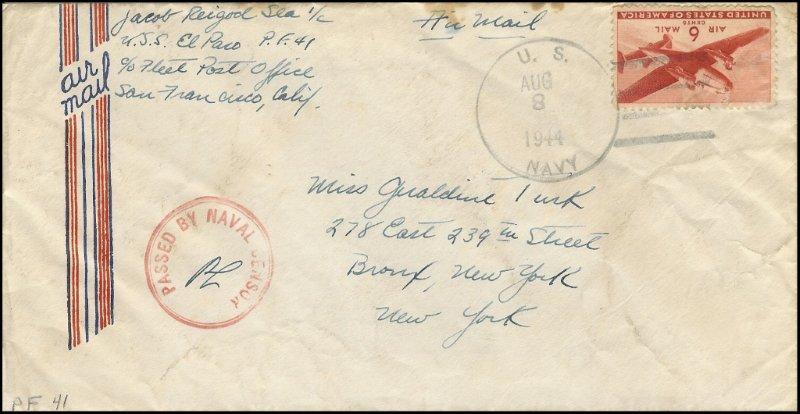 Jacob Reigod Sea 1/c
U.S.S. El Paso P.F. 41
c/o Fleet Post Office
San Francisco, Calif.
Air Mail
air
mail
U. S.
AUG
8
1944
NAVY
UNITED STATES OF AMERICA
AIR MAIL 6 CENTS
Miss Geraldine Turk
278 East 239th Street
Bronx, New York
New York
PASSED BY NAVAL CENSOR
P.F. 41